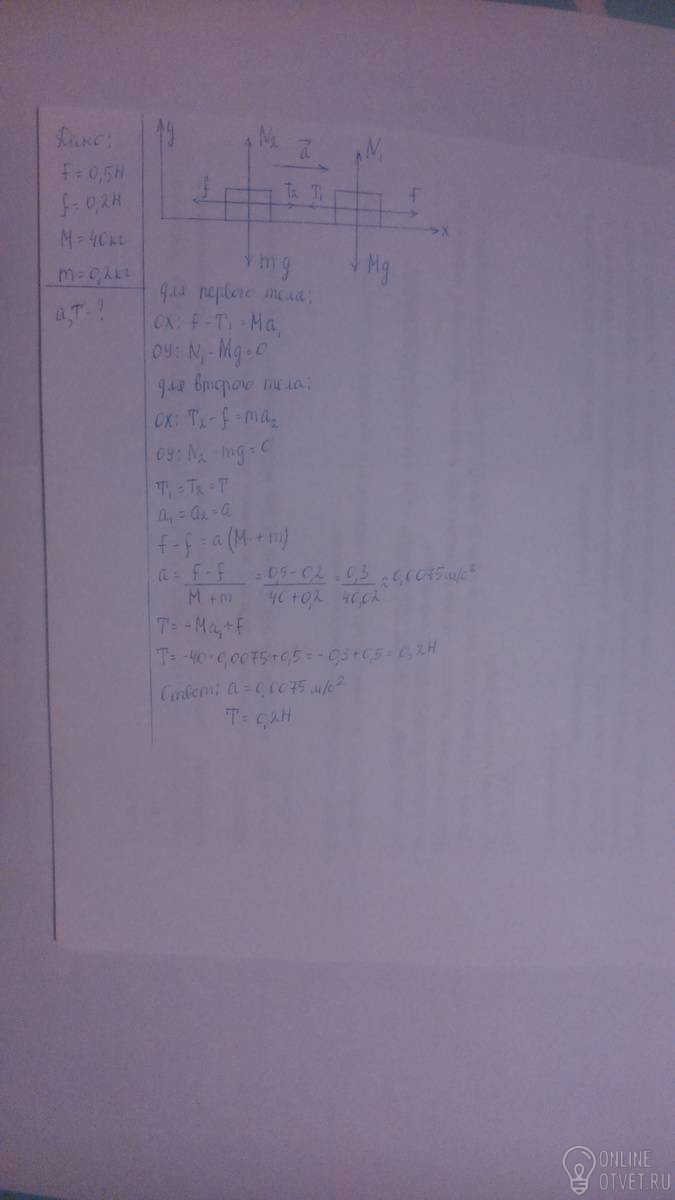 Дано:
F = 0,5Н
f = 0,2Н
M = 40кг
m = 0,2кг
a,T - ?
y
N2
a
N1
f
T2
T1
F
x
mg
Mg
для первого тела:
OX: F - T1 = Ma1
OY: N1 - Mg = 0
для второго тела:
OX: T2 - f = ma2
OY: N2 - mg = 0
T1 = T2 = T
a1 = a2 = a
F - f = a(M + m)
a = F - f / M + m = 0,5 - 0,2 / 40 + 0,2 = 0,3 / 40,02 ≈ 0,0075 м/с²
T = -Ma1 + F
T = -40 · 0,0075 + 0,5 = -0,3 + 0,5 = 0,2Н
Ответ: a = 0,0075 м/с²
T = 0,2Н
ONLINE
OTVET.RU